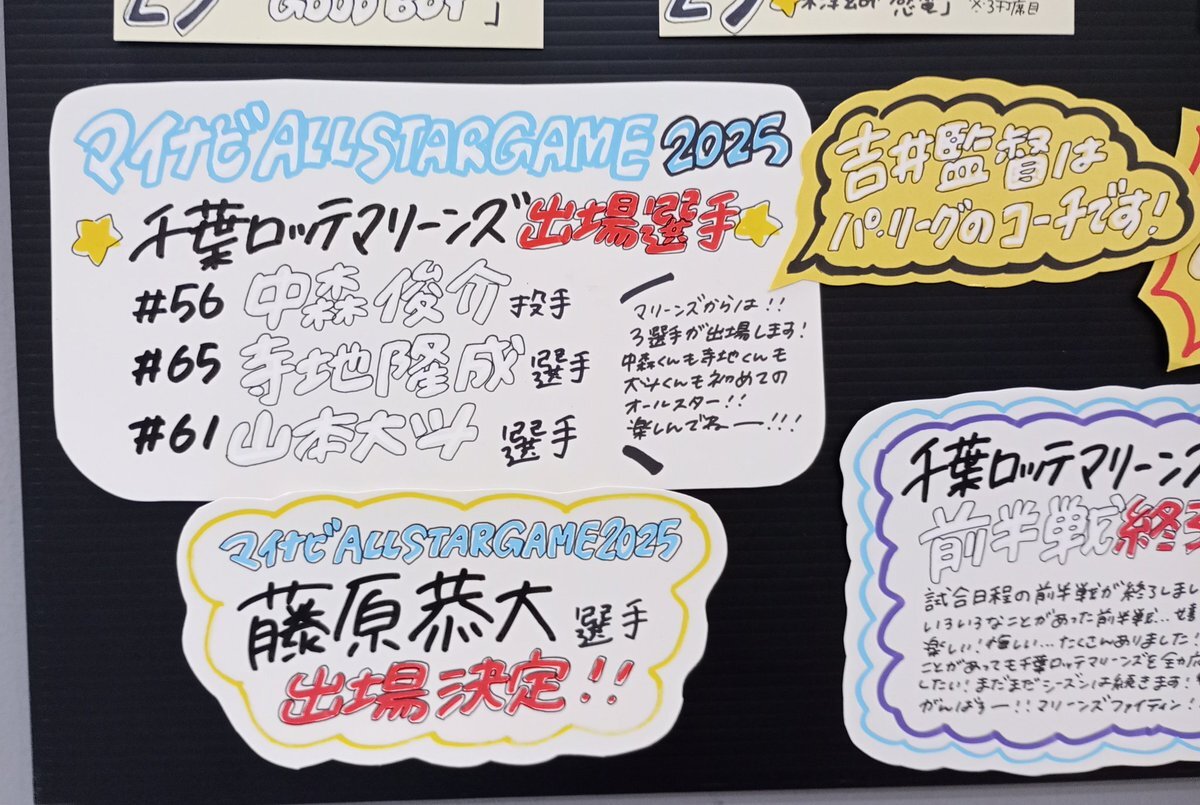 GOOD BOY」
※3打席目
マイナビALLSTARGAME 2025
千葉ロッテマリーンズ出場選手
#56 中森俊介投手
#65 寺地隆成選手
#61 山本大斗選手
マリーンズからは!!
3選手が出場します!
中森くんも寺地くんも
大斗くんも初めての
オールスター!!
楽しんでねー!!!
吉井監督は
パ・リーグのコーチです!
マイナビALLSTARGAME2025
藤原恭大選手
出場決定!!
千葉ロッテマリーンズ
前半戦終
試合日程の前半戦が終了しまし
いろいろなことがあった前半戦…嬉
楽しい!悔しい…たくさんありました!
ことがあっても千葉ロッテマリーンズを全力応
したい!まだまだシーズンは続きます!
がんばすー!!マリーンズファイティン!